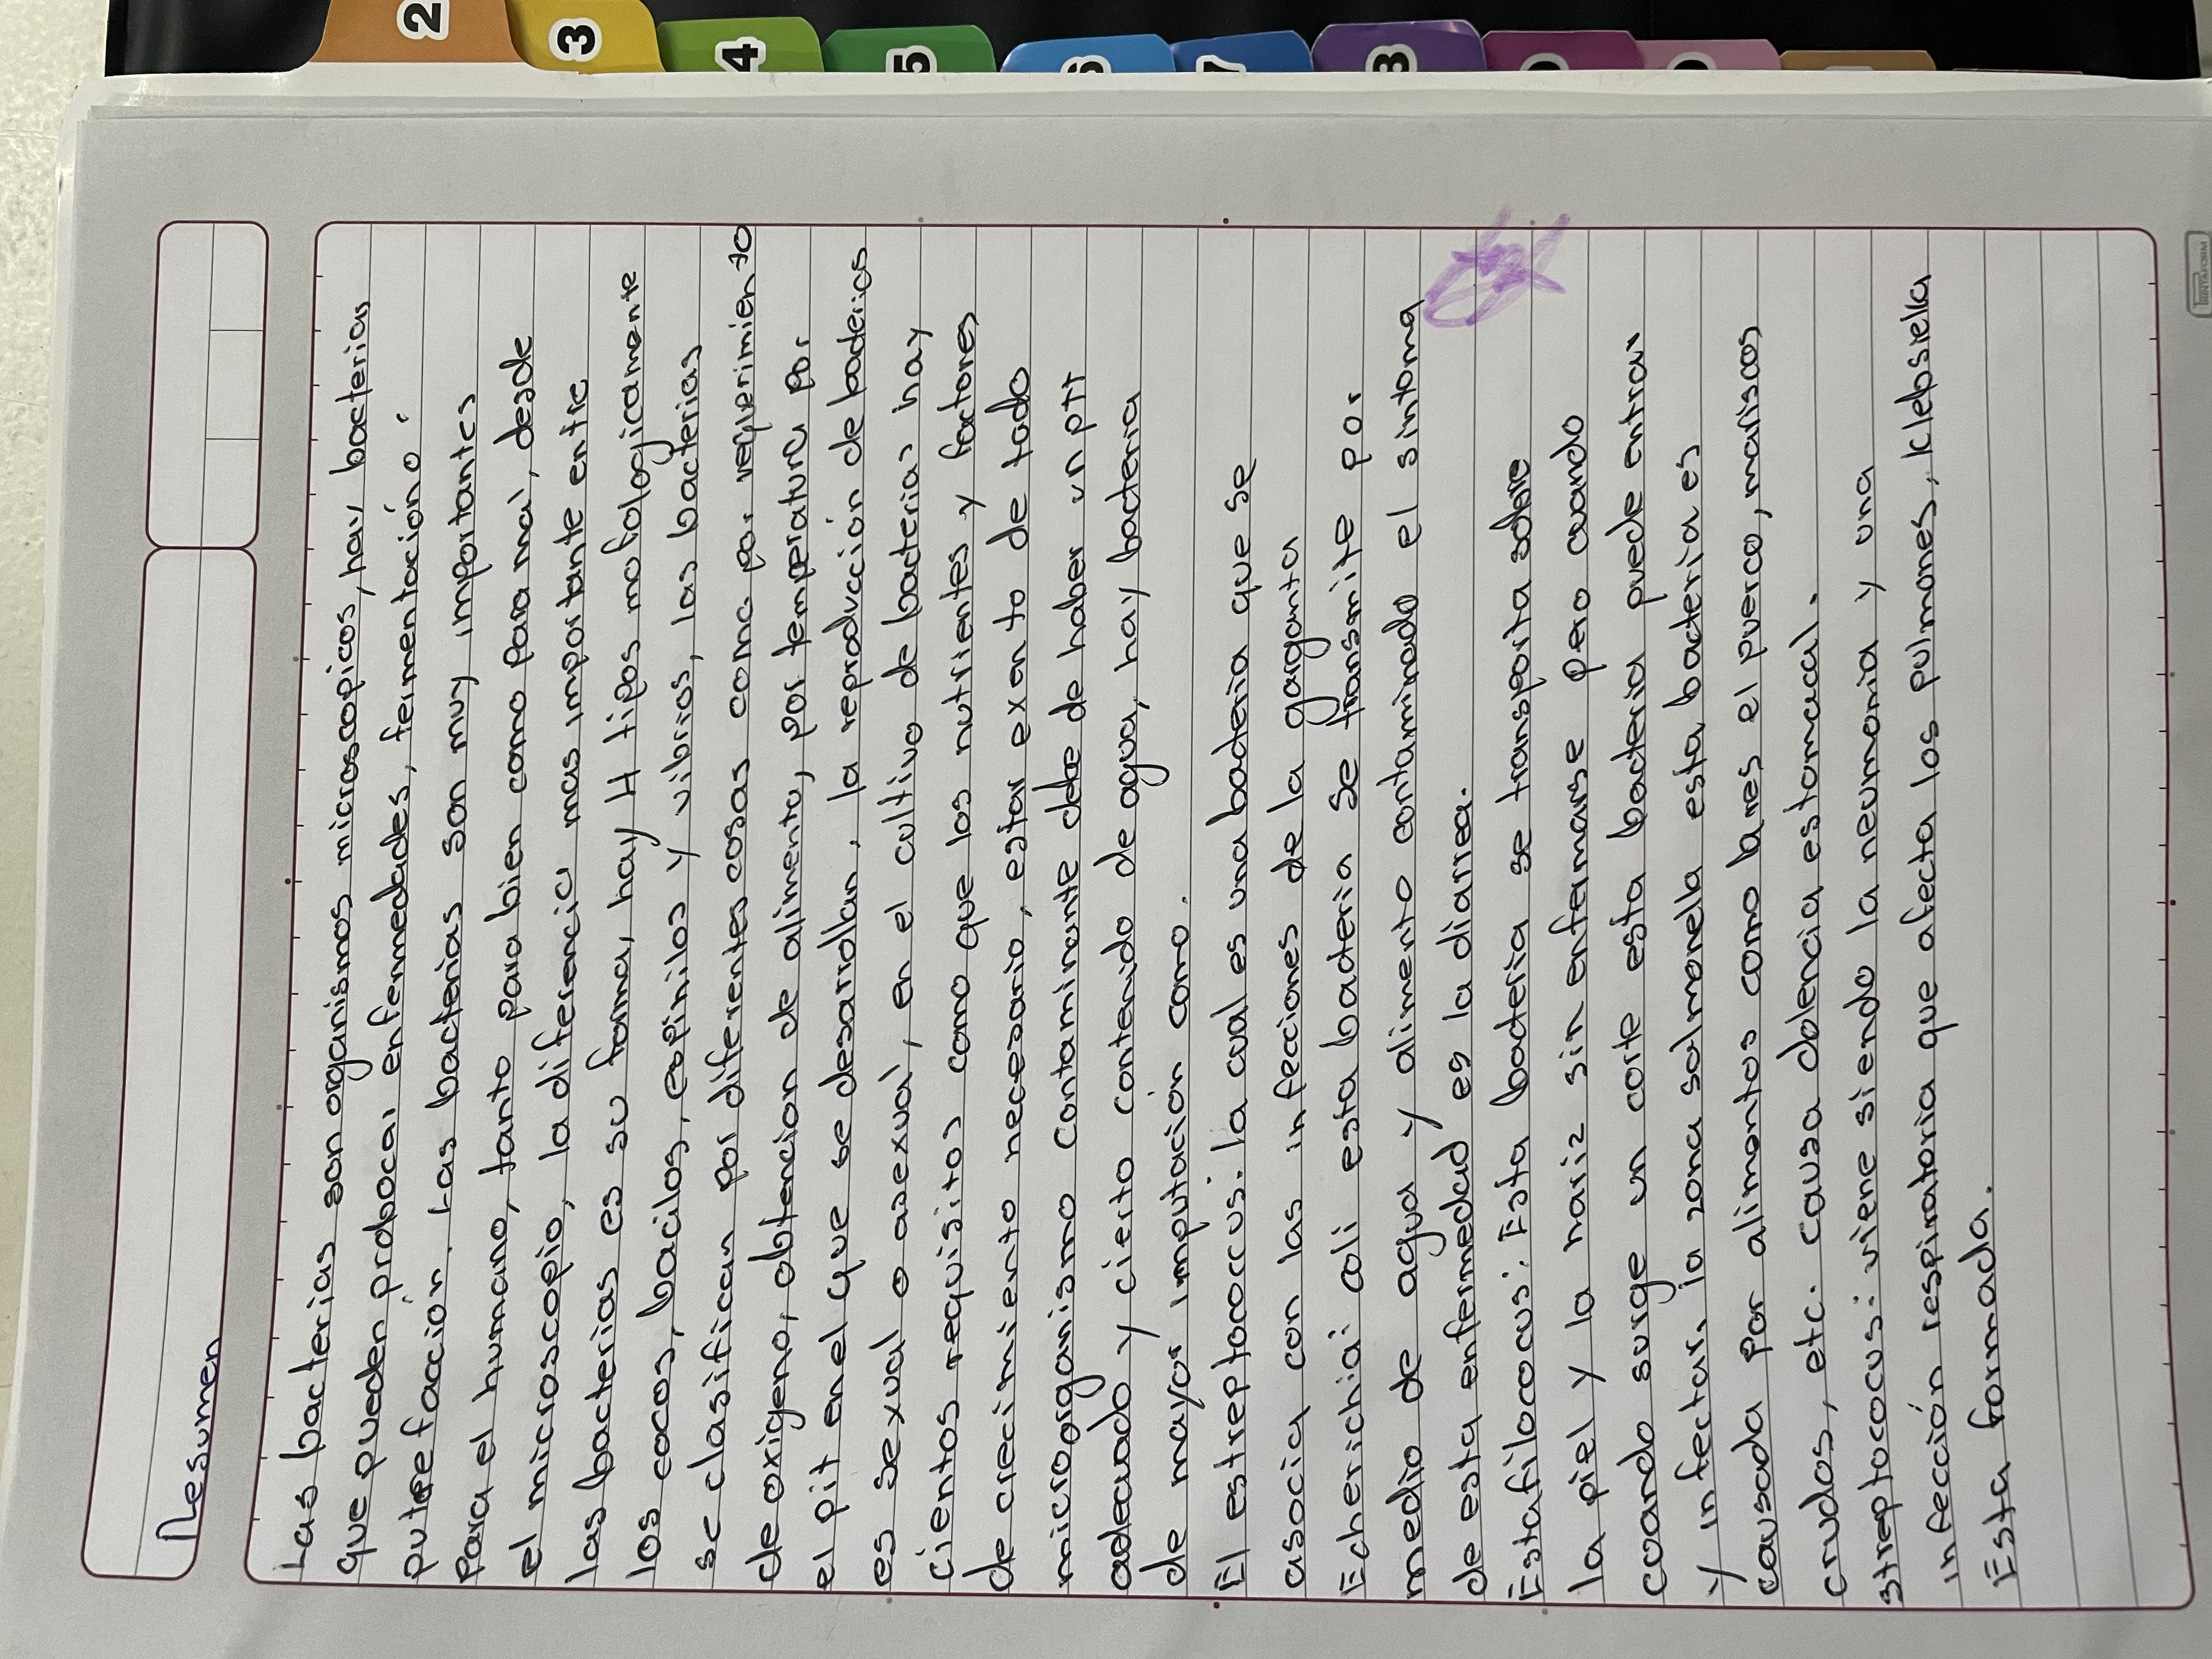 2
3
4
5
6
7
8
Resumen
Las bacterias son organismos microscopicos, hay bacterias
que pueden probocar enfermedades, fermentación o
putrefacción. Las bacterias son muy importantes
para el humano, tanto para bien como para mal, desde
el microscopio, la diferencia mas importante entre
las bacterias es su forma, hay 4 tipos mofologicamente
los cocos, bacilos, espirilos y vibrios, las bacterias
se clasifican por diferentes cosas como por requerimiento
de oxigeno, obtencion de alimento, por temperatura por
el pit en el que se desarrollan, la reproducción de bacterias
es sexual o asexual, en el cultivo de bacterias hay
cientos requisitos como que los nutrientes y factores
de crecimiento necesario, estar exento de todo
microorganismo contaminante debe de haber un ptt
adecuado y cierto contenido de agua, hay bacteria
de mayor imputacion como.
El estreptococcus: la cual es una bacteria que se
asocia con las infecciones de la garganta
Echerichia: coli esta bacteria se transmite por
medio de agua y alimento contaminado el sintoma
de esta enfermedad es la diarrea.
Estafilococus: Esta bacteria se transporta sobre
la piel y la nariz sin enfermarse pero cuando
cuando surge un corte esta bacteria puede entrar
y infectar, la zona salmonella esta bacteria es
causada por alimentos como carnes el puerco, mariscos
crudos, etc. causa dolencia estomacal.
streptococus: viene siendo la neumonia y una
infección respiratoria que afecta los pulmones, klebsiella
Esta formada.
PRINTAFORM